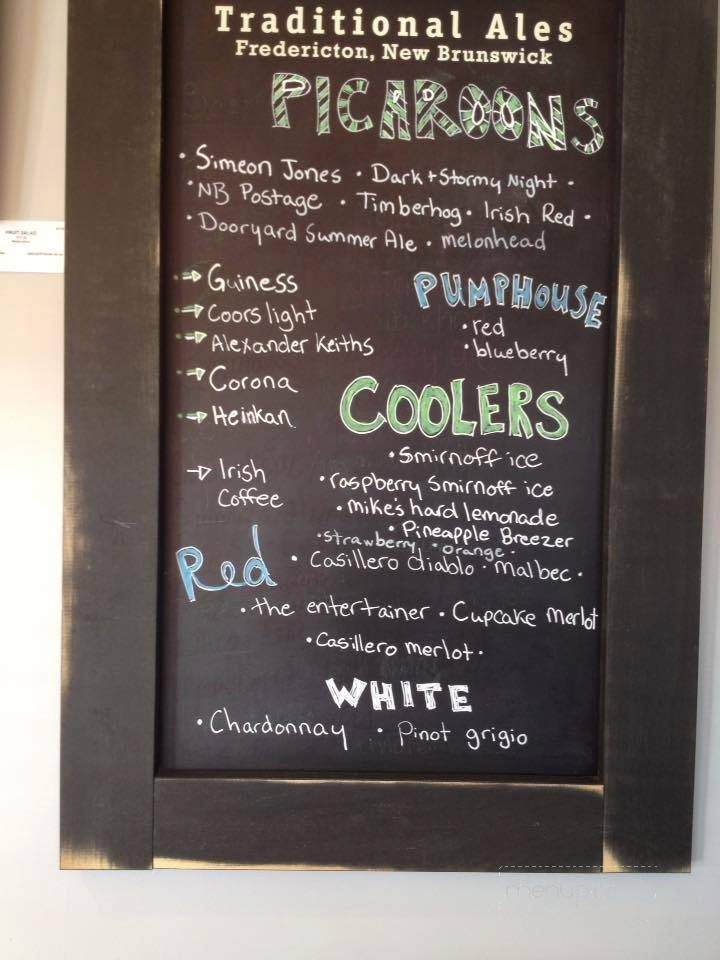 Traditional Ales
Fredericton, New Brunswick
PICAROONS
• Simeon Jones • Dark + Stormy Night •
• NB Postage • Timberhog • Irish Red •
• Dooryard Summer Ale • melonhead
→ Guiness
→ Coors light
→ Alexander Keiths
→ Corona
→ Heinkan
→ Irish
Coffee
PUMPHOUSE
• red
• blueberry
COOLERS
• Smirnoff ice
• raspberry Smirnoff ice
• mike's hard lemonade
• Pineapple Breezer
• strawberry • orange •
Red • Casillero diablo • malbec •
• the entertainer • Cupcake merlot
• Casillero merlot •
WHITE
• Chardonnay • Pinot grigio
FRUIT SALAD